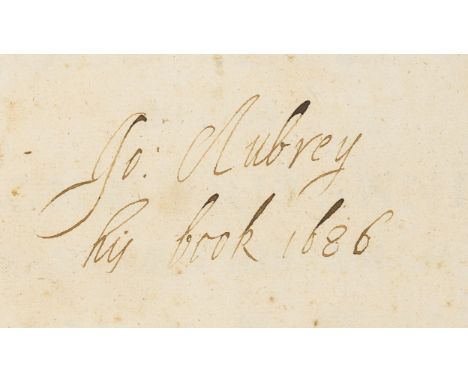 Jo: Aubrey
his book 1686